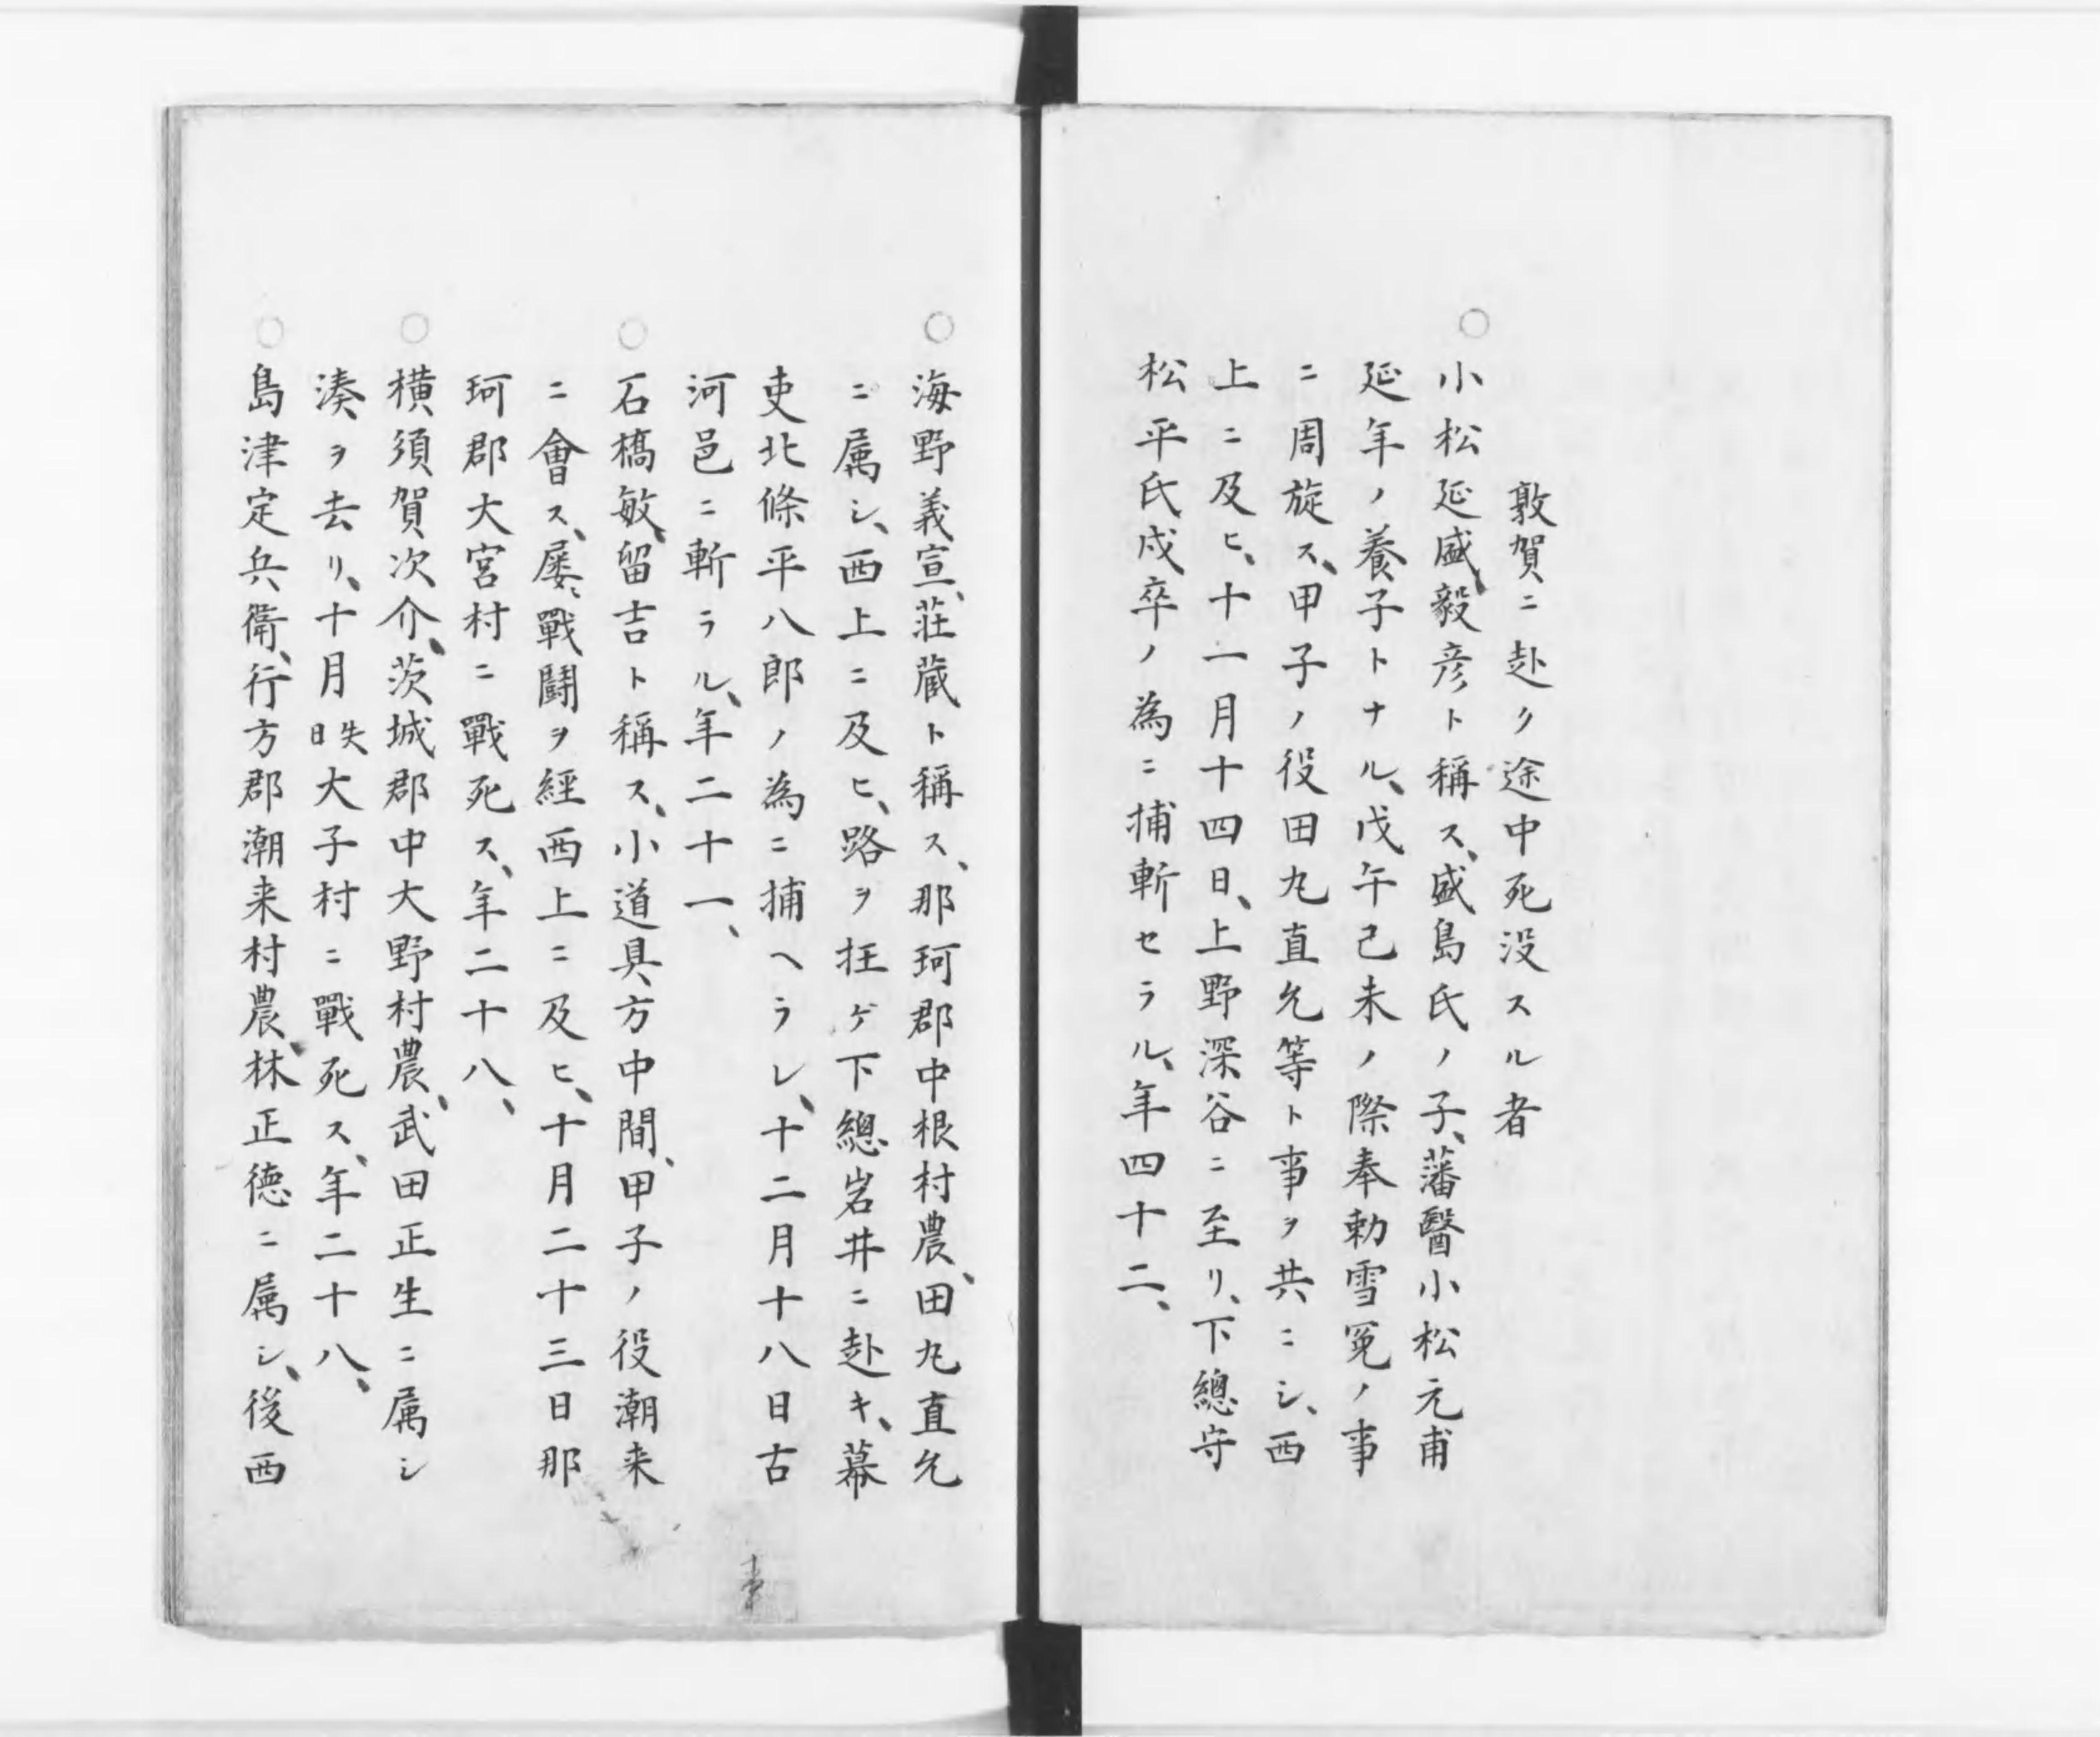 敦賀ニ赴ク途中死没スル者
○小松延盛、毅彦ト稱ス、盛島氏ノ子、藩醫小松元甫
延年ノ養子トナル、戊午己未ノ際奉勅雪冤ノ事
ニ周旋ス、甲子ノ役田丸直允等ト事ヲ共ニシ、西
上ニ及ヒ、十一月十四日、上野深谷ニ至リ、下總守
松平氏戍卒ノ為ニ捕斬セラル、年四十二、
○海野義宣、荘蔵ト稱ス、那珂郡中根村農、田丸直允
ニ属シ、西上ニ及ヒ、路ヲ抂ゲ下總岩井ニ赴キ、幕
吏北條平八郎ノ為ニ捕ヘラレ、十二月十八日古
河邑ニ斬ラル、年二十一、
○石橋敏、留吉ト稱ス、小道具方中間、甲子ノ役潮来
ニ會ス、屡〻戰鬪ヲ經西上ニ及ヒ、十月二十三日那
珂郡大宮村ニ戰死ス、年二十八、
○横須賀次介、茨城郡中大野村農、武田正生ニ属シ
湊ヲ去リ、十月日失大子村ニ戰死ス、年二十八、
○島津定兵衛、行方郡潮来村農、林正徳ニ属シ、後西